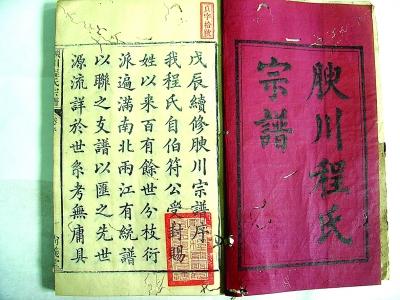 腴川程氏
宗譜
貞字拾號
戊辰續修腴川宗譜序
我程氏自伯符公受封賜
姓以來百有餘世分枝衍
派遍滿南北兩江有統譜
以聯之支譜以匯之先世
源流詳於世系考無庸具